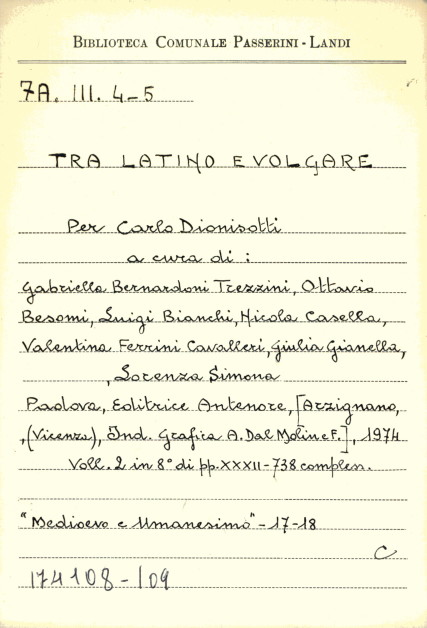 BIBLIOTECA COMUNALE PASSERINI - LANDI
7A. III. 4-5
TRA LATINO E VOLGARE
Per Carlo Dionisotti
a cura di :
Gabriella Bernardoni Trezzini, Ottavio
Besomi, Luigi Bianchi, Nicola Casella,
Valentina Ferrini Cavalleri, Giulia Gianella,
, Lorenza Simona
Padova, Editrice Antenore, [Arzignano,
,(Vicenza), Ind. Grafica A. Dal Molin e F.], 1974
Voll. 2 in 8° di pp. XXXII-738 complen.
"Medioevo e Umanesimo" - 17-18
C
174108-109